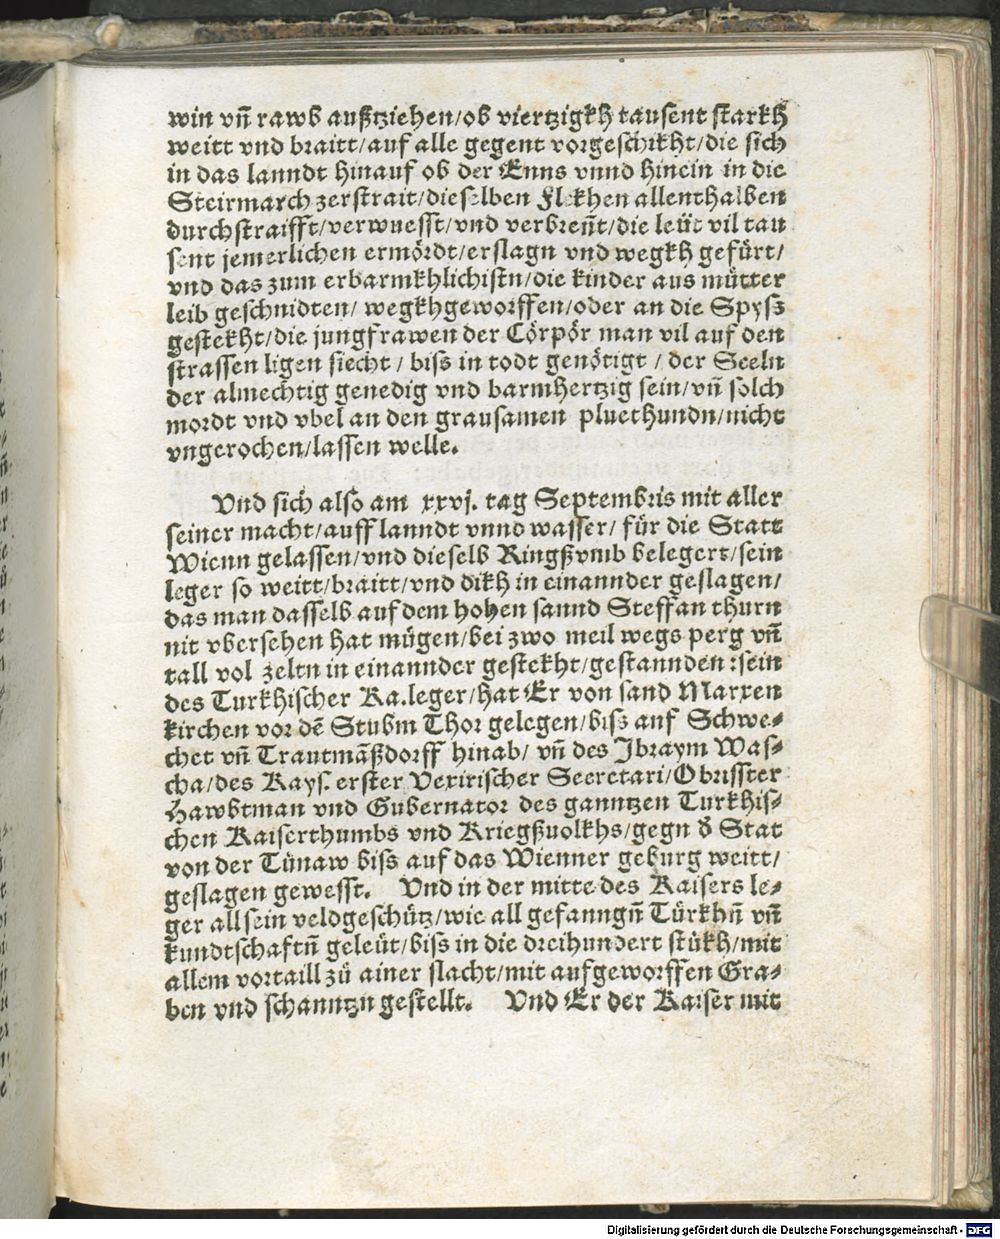 win vñ rawb außtziehen/ob viertzigkh tausent starkh
weitt vnd braitt/auf alle gegent vorgeschikht/die sich
in das lanndt hinauf ob der Enns vnnd hinein in die
Steirmarch zerstrait/dieselben Flekhen allenthalben
durchstraifft/verwuesst/vnd verbreñt/die leüt vil tau
sent jemerlichen ermördt/erslagn vnd wegkh gefürt/
vnd das zum erbarmkhlichistn/die kinder aus mütter
leib geschnidten/ wegkhgeworffen/oder an die Spysz
gestekht/die jungfrawen der Cörpör man vil auf den
strassen ligen siecht / biss in todt genötigt / der Seeln
der almechtig genedig vnd barmhertzig sein/vñ solch
mordt vnd vbel an den grausamen pluethundn/nicht
vngerochen/lassen welle.
Vnd sich also am xxvj. tag Septembris mit aller
seiner macht/auff lanndt vnnd wasser/ für die Statt
Wienn gelassen/vnd dieselb Ringßvmb belegert/sein
leger so weitt/braitt/vnd dikh in einannder geslagen/
das man dasselb auf dem hohen sannd Steffan thurn
nit vbersehen hat mügen/bei zwo meil wegs perg vñ
tall vol zeltn in einannder gestekht/gestannden:sein
des Turkhischer Ka.leger/hat Er von sand Marxen
kirchen vor dẽ Stubm Thor gelegen/bisz auf Schwe⸗
chet vñ Trautmãßdorff hinab/ vñ des Jbraym Was⸗
cha/des Kays. erster Vexirischer Secretari/Obrisster
Hawbtman vnd Gubernator des ganntzen Turkhis⸗
chen Kaiserthumbs vnd Kriegßuolkhs/gegn d̕ Stat
von der Tünaw biss auf das Wienner geburg weitt/
geslagen gewesst. Vnd in der mitte des Kaisers le⸗
ger all sein veldgeschütz/wie all gefanngñ Türkhñ vñ
kundtschaftñ geleüt/biss in die dreihundert stükh/mit
allem vortaill zü ainer slacht/mit aufgeworffen Gra⸗
ben vnd schanntzn gestellt. Vnd Er der Kaiser mit
Digitalisierung gefördert durch die Deutsche Forschungsgemeinschaft - DFG